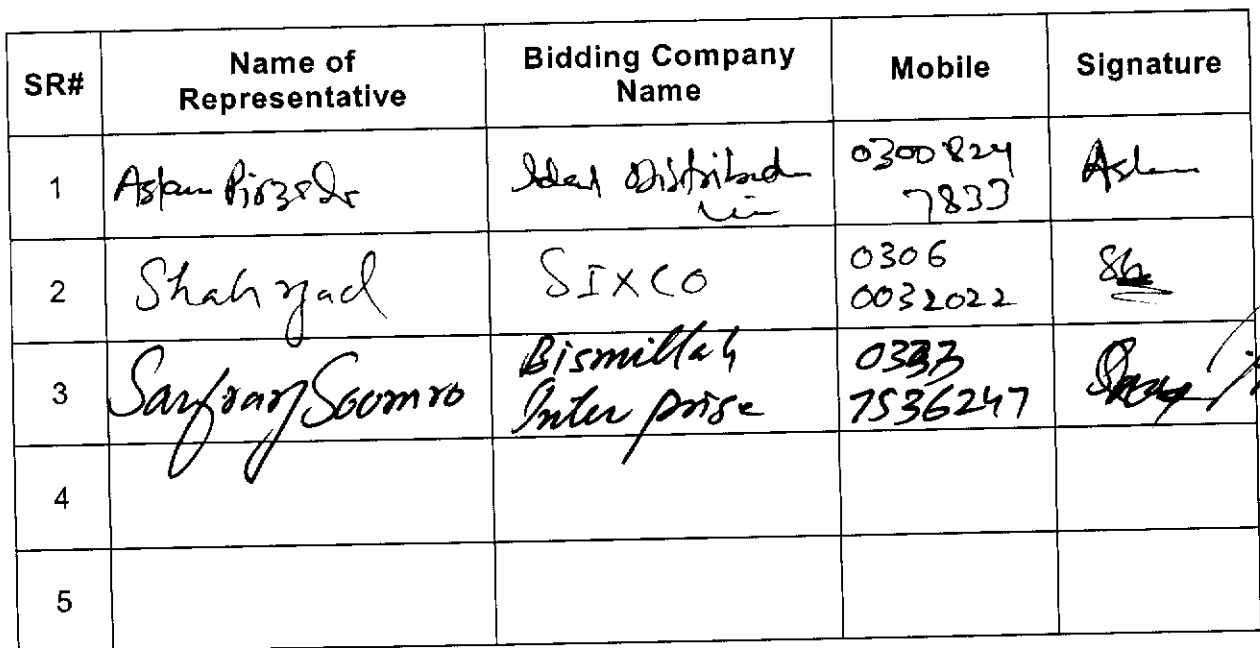 SR# Name of Representative Bidding Company Name Mobile Signature
1 Aslam Pirzada Ideal Distribution 0300 824 7833 Aslam
2 Shahzad SIXCO 0306 0032022
3 Sarfraz Soomro Bismillah Inter prise 0333 7536247
4
5